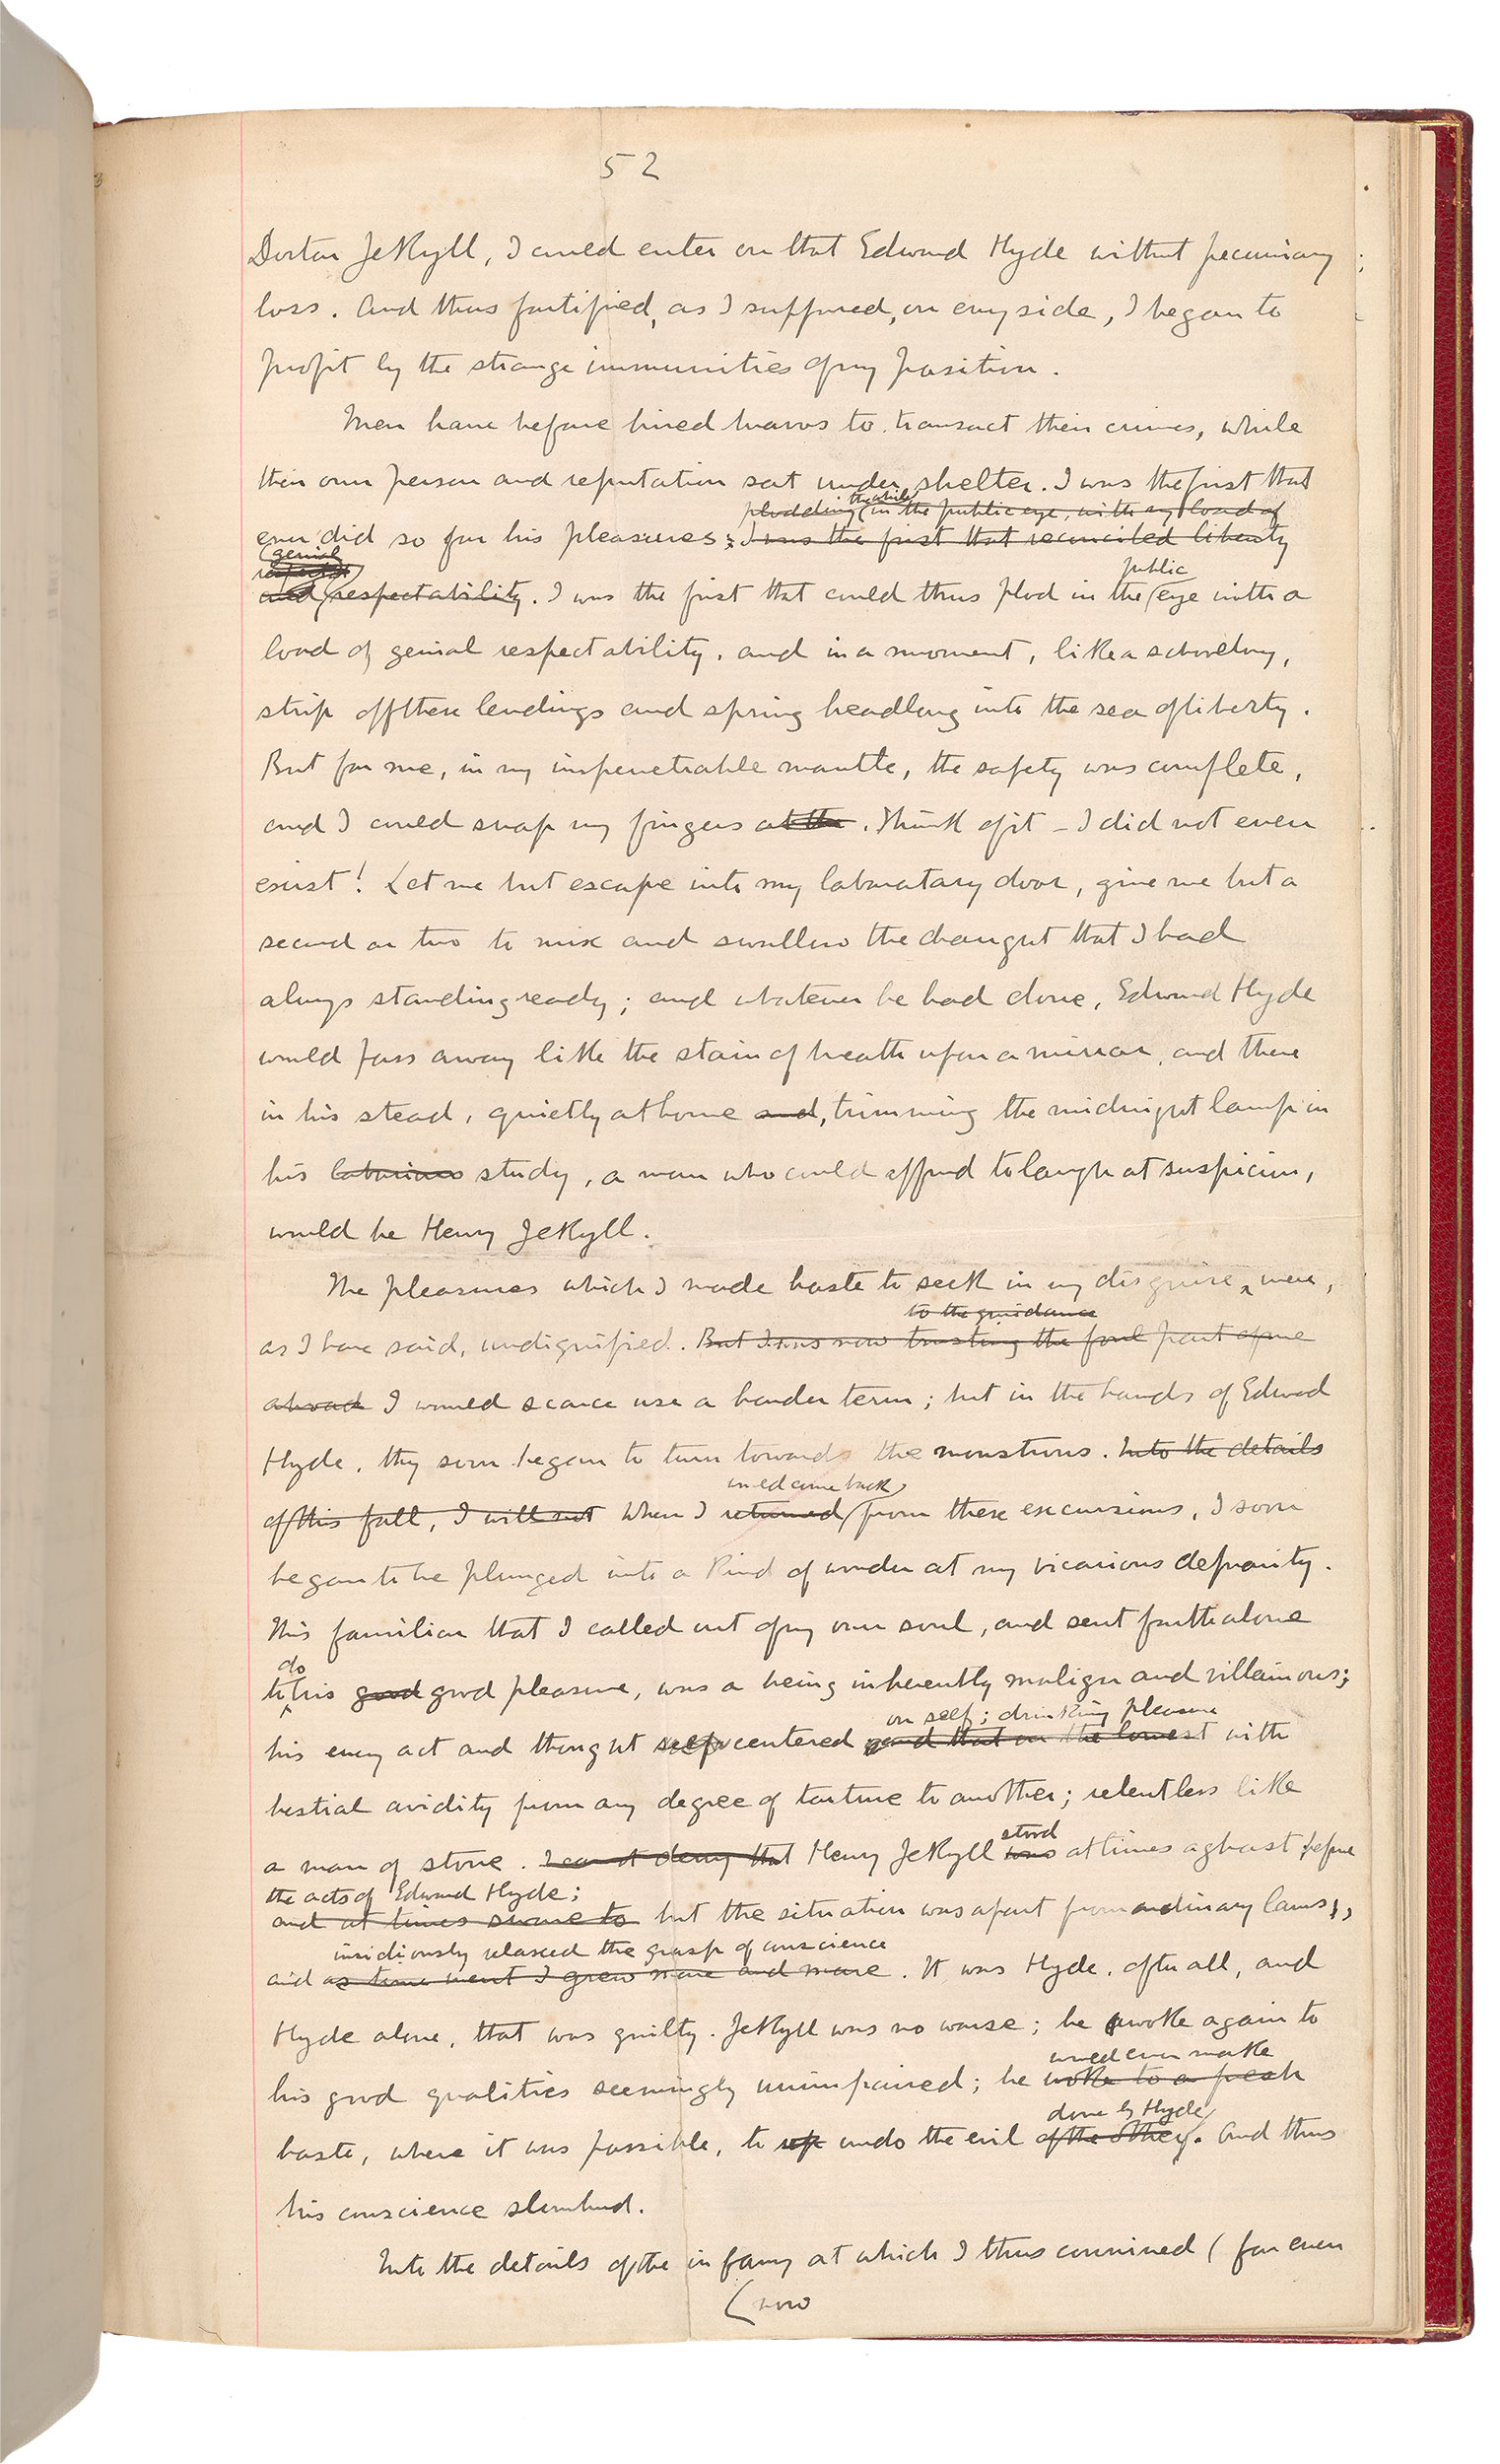 52
Doctor Jekyll, I could enter on that Edward Hyde without pecuniary
loss. And thus fortified, as I supposed, on every side, I began to
profit by the strange immunities of my position.
Men have before hired bravos to transact their crimes, while
their own person and reputation sat under shelter. I was the first that
plodding the while in the public eye, with my load of
ever did so for his pleasures; I was the first that reconciled liberty
genial
and respectability. I was the first that could thus plod in the eye with a
public
load of genial respectability, and in a moment, like a schoolboy,
strip off these lendings and spring headlong into the sea of liberty.
But for me, in my impenetrable mantle, the safety was complete,
and I could snap my fingers at the. Think of it – I did not even
exist! Let me but escape into my laboratory door, give me but a
second or two to mix and swallow the draught that I had
always standing ready; and whatever he had done, Edward Hyde
would pass away like the stain of breath upon a mirror, and there
in his stead, quietly at home and, trimming the midnight lamp in
his laborious study, a man who could afford to laugh at suspicion,
would be Henry Jekyll.
The pleasures which I made haste to seek in my disguise, were,
to the guidance
as I have said, undignified. But I was now trusting the foul part of me
abroad I would scarce use a harder term; but in the hands of Edward
Hyde, they soon began to turn towards the monstrous. Into the details
would come back
of this fall, I will not When I returned from these excursions, I soon
began to be plunged into a kind of wonder at my vicarious depravity.
This familiar that I called out of my own soul, and sent forth alone
do
to his good good pleasure, was a being inherently malign and villainous;
on self; drinking pleasure
his every act and thought self centered and that on the lowest with
bestial avidity from any degree of torture to another; relentless like
stood
a man of stone. I cannot deny that Henry Jekyll was at times aghast before
the acts of Edward Hyde;
and at times swore to but the situation was apart from ordinary laws,
insidiously relaxed the grasp of conscience
and as time went I grew more and more. It was Hyde, after all, and
Hyde alone, that was guilty. Jekyll was no worse; he awoke again to
would even make
his good qualities seemingly unimpaired; he woke to a
done by Hyde
haste, where it was possible, to undo the evil of the other. And thus
his conscience slumbered.
Into the details of the infamy at which I thus connived (for even
(now